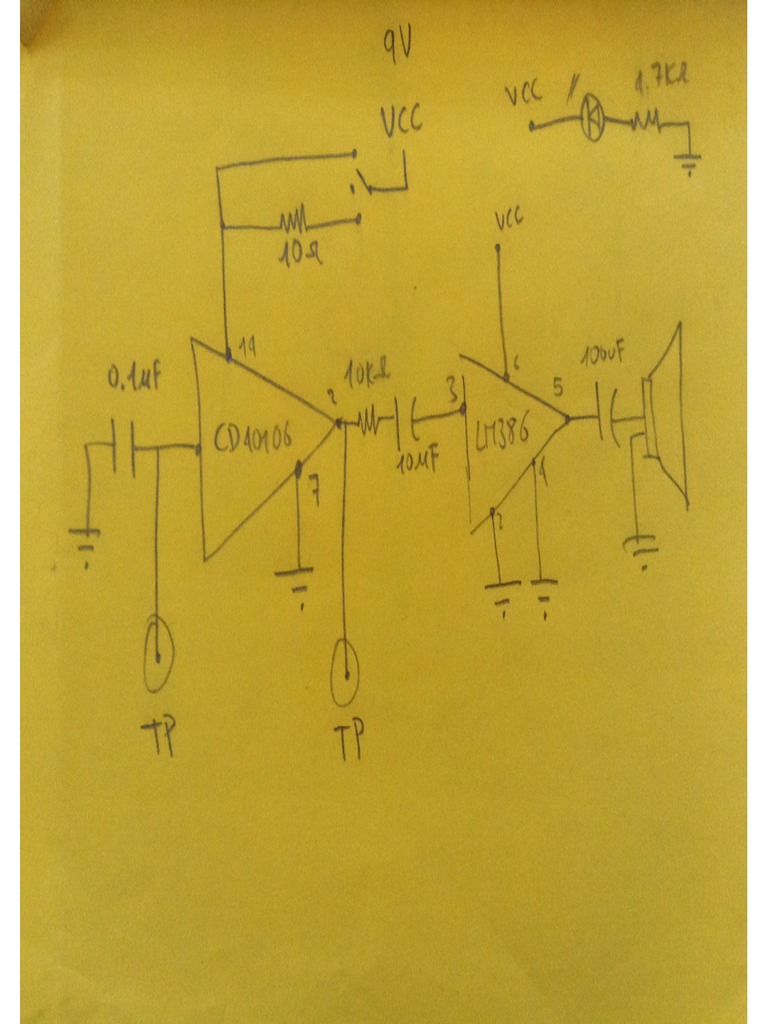 9V
VCC
VCC
1.7KΩ
10Ω
VCC
14
6
0.1µF
10KΩ
100uF
2
3
5
CD40106
LM386
10µF
4
7
2
TP
TP